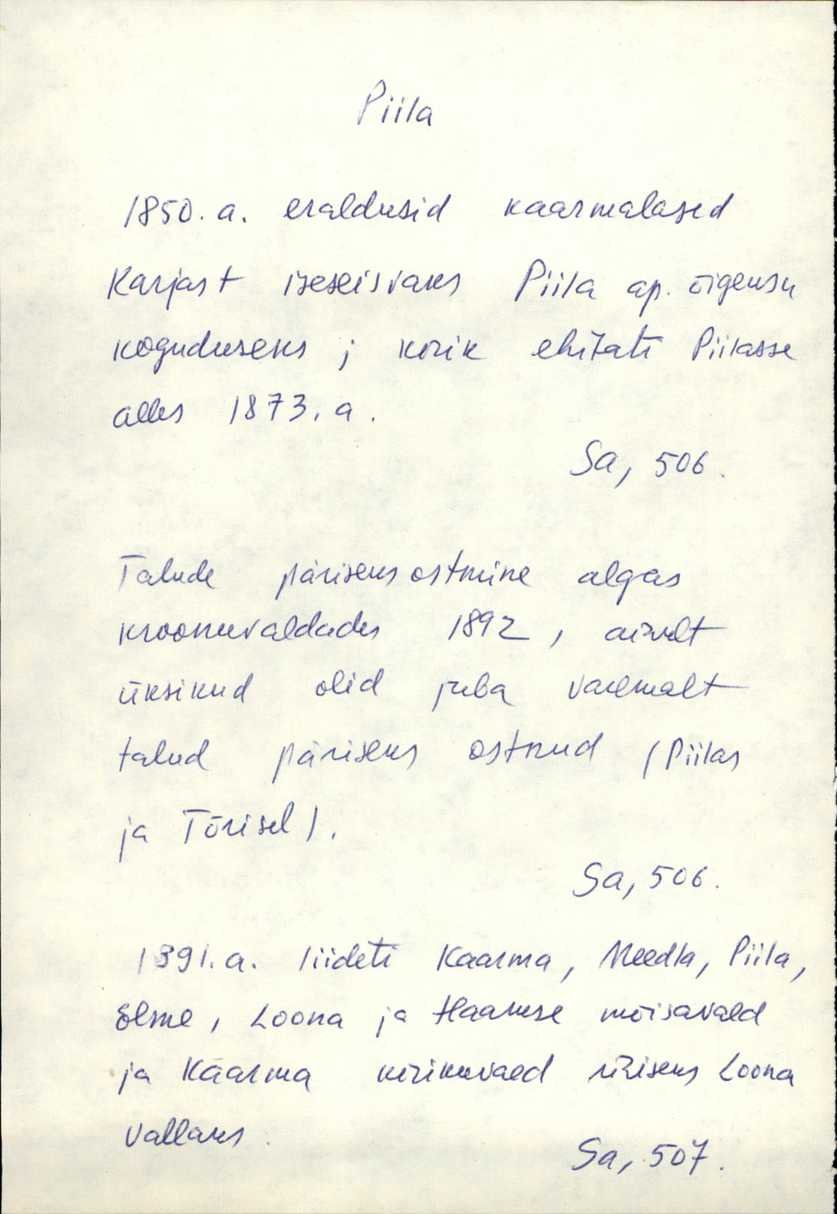 Piila
1850. a. eraldusid kaarmalased
Karjast iseseisvaks Piila ap. õigeusu
koguduseks ; kirik ehitati Piilasse
alles 1873. a.
Sa, 506.
Talude päriseks ostmine algas
kroonuvaldades 1892, ainult
üksikud olid juba varemalt
talud päriseks ostnud (Piilas
ja Tõrisel).
Sa, 506.
1891. a. liideti Kaarma, Meedla, Piila,
Loona ja Haamse mõisavald
ja Kaarma kirikuvald ühiseks Loona
vallaks.
Sa, 507.